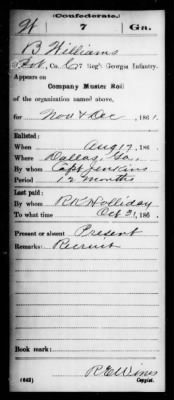 (Confederate.)
W 7 Ga.
B Williams
Pvt, Co. C, 7 Reg't Georgia Infantry.
Appears on
Company Muster Roll
of the organization named above,
for Nov & Dec, 1861.
Enlisted:
When Aug 17, 186 .
Where Dallas, Ga.
By whom Capt Jenkins
Period 12 months
Last paid:
By whom R K Holliday
To what time Oct 31, 186 .
Present or absent Present
Remarks: Recruit
Book mark:
(642) R E Wims
Copyist.